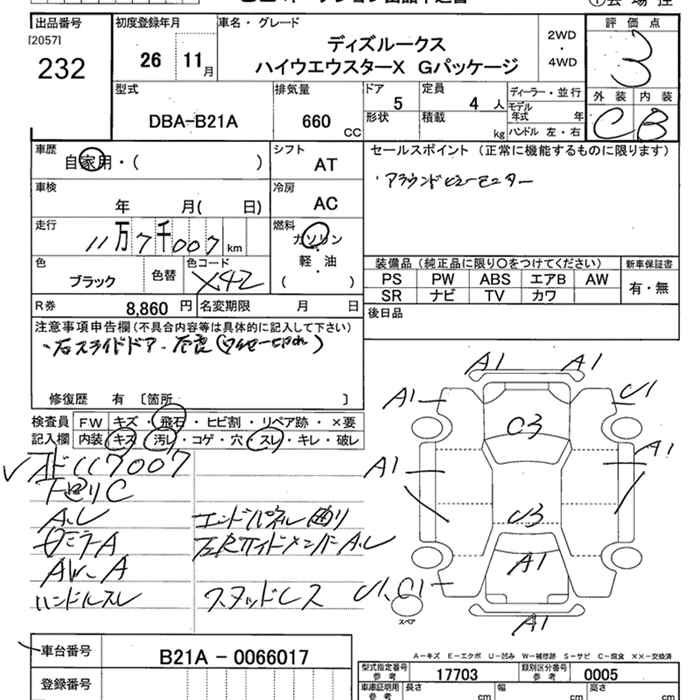 出品番号
[2057]
232
初度登録年月
26 11 月
車名・グレード
ディズルークス
ハイウエウスターX Gパッケージ
2WD
・
4WD
評価点
3
外装 内装
C B
型式
DBA-B21A
排気量
660 CC
ドア 5
定員 4 人
形状
積載 kg
ディーラー・並行
モデル年式 年
ハンドル 左・右
車歴
自家用・( )
シフト
AT
セールスポイント (正常に機能するものに限ります)
・アラウンドビューモニター
車検
年 月( 日)
冷房
AC
走行
11万7千007 km
燃料
ガソリン
軽・油
( )
色
ブラック
色替
色コード
X42
装備品 (純正品に限り○をつけてください)
新車保証書
PS PW ABS エアB AW
SR ナビ TV カワ
有・無
R券 8,860 円
名変期限 月 日
後日品
注意事項申告欄 (不具合内容等は具体的に記入して下さい)
・右スライドドア
修復歴 有 〔箇所 〕
検査員記入欄
FW キズ・飛石・ヒビ割・リペア跡・×要
内装 キズ・汚レ・コゲ・穴・スレ・キレ・破レ
117007
下廻りC
A.U
エンドパネル曲り
左Rサイドメンバー A.U
AW-A
ハンドルスレ
スタッドレス
A1 A1
A1 U1
C3
A1 A1
U3
A1
U1、C1
A1
スペア
A-キズ E-エクボ U-凹み W-補修跡 S-サビ C-腐食 XX-交換済
車台番号
B21A - 0066017
登録番号
型式指定番号 参考
17703
類別区分番号 参考
0005
車庫証明用 参考
長さ cm
幅 cm
高さ cm